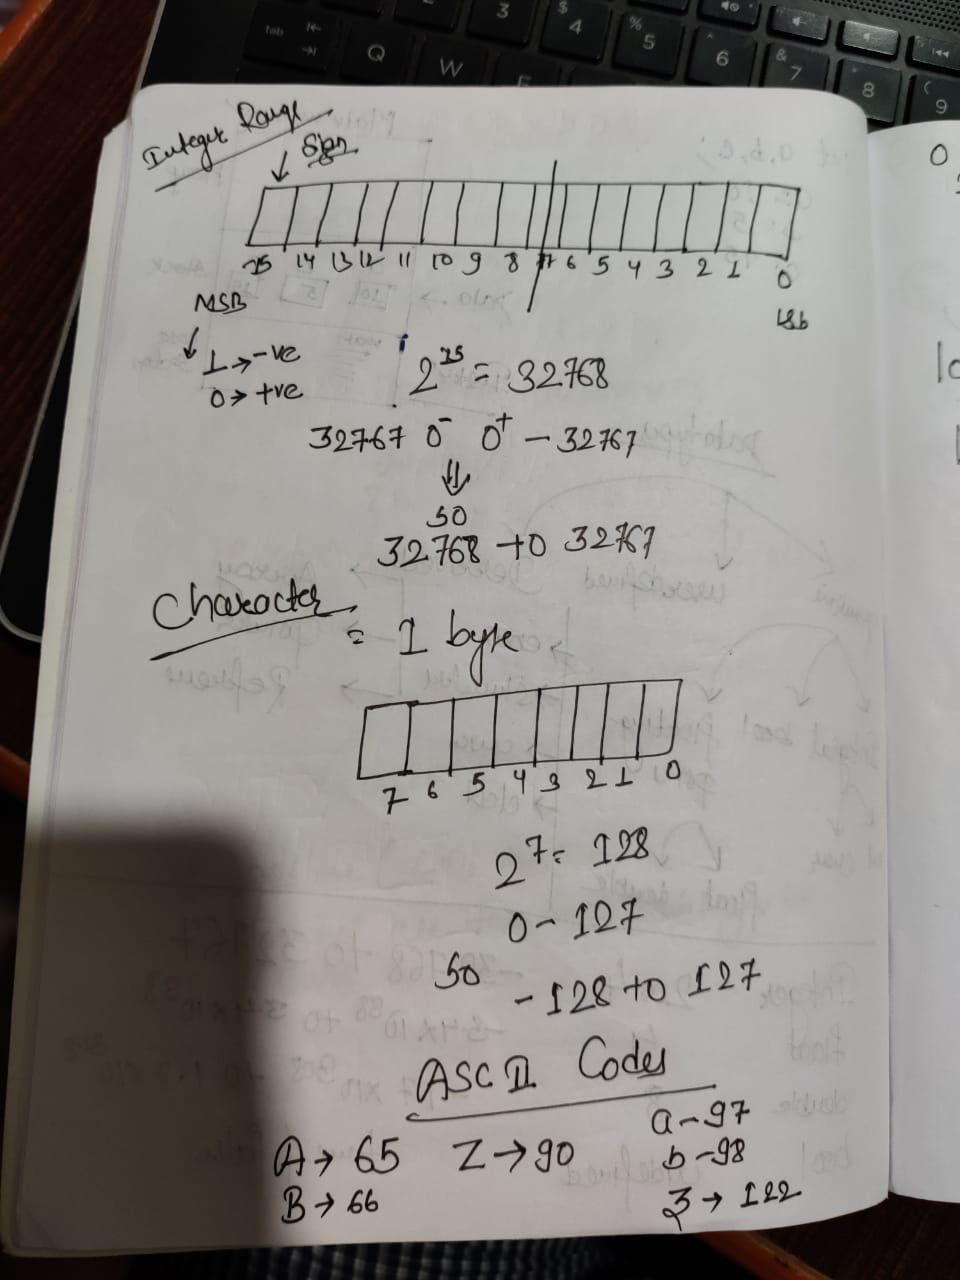 Integer Range
Sign
15 14 13 12 11 10 9 8 7 6 5 4 3 2 1 0
MSB
Lsb
1 → -ve
0 → +ve
2^15 = 32768
32767 0^- 0^+ - 32767
⇓
SO
32768 to 32767
Character = 1 byte
7 6 5 4 3 2 1 0
2^7 = 128
0 - 127
So
- 128 to 127
ASCII Codes
A → 65 Z → 90 a - 97
B → 66 b - 98
z → 122